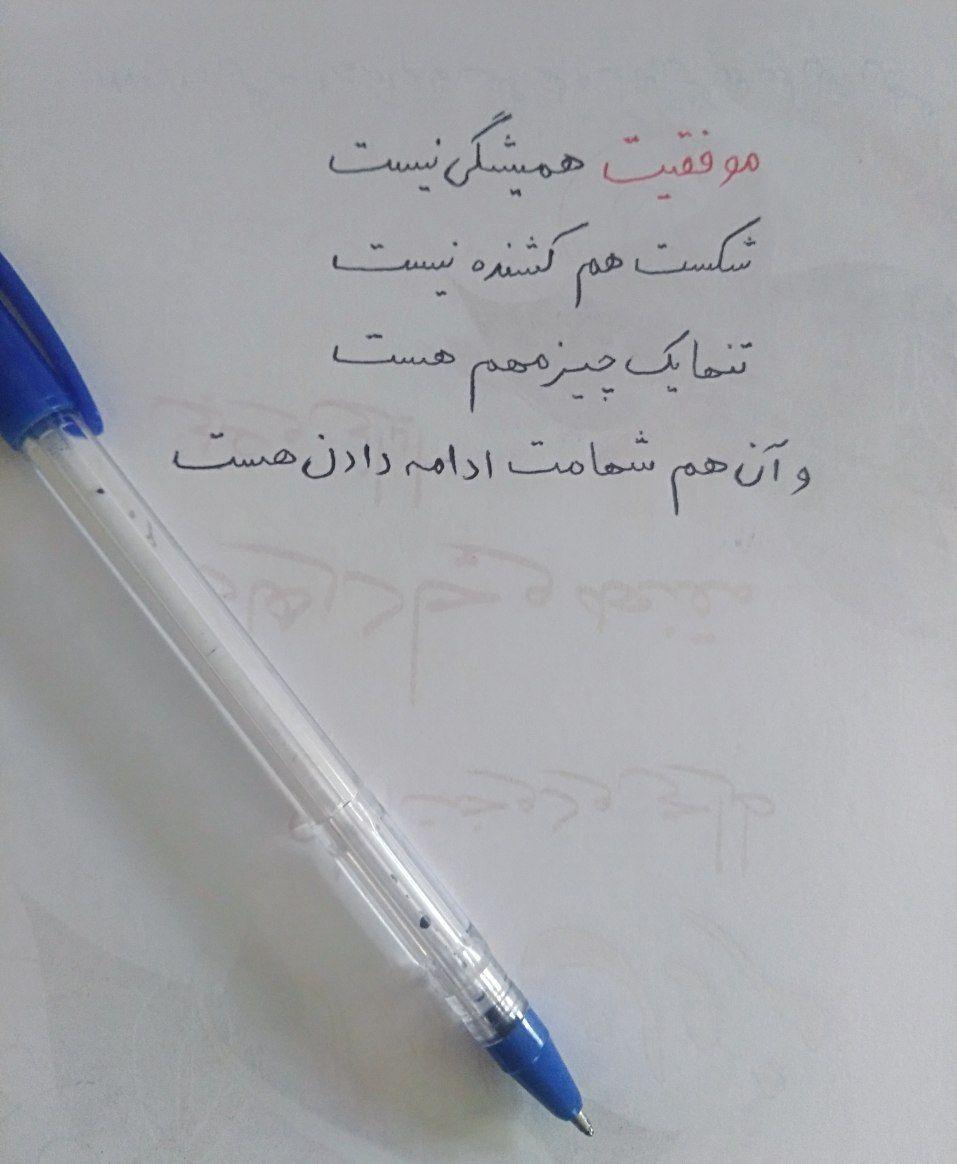 موفقیت همیشگی نیست
شکست هم کشنده نیست
تنها یک چیز مهم هست
و آن هم شهامت ادامه دادن هست